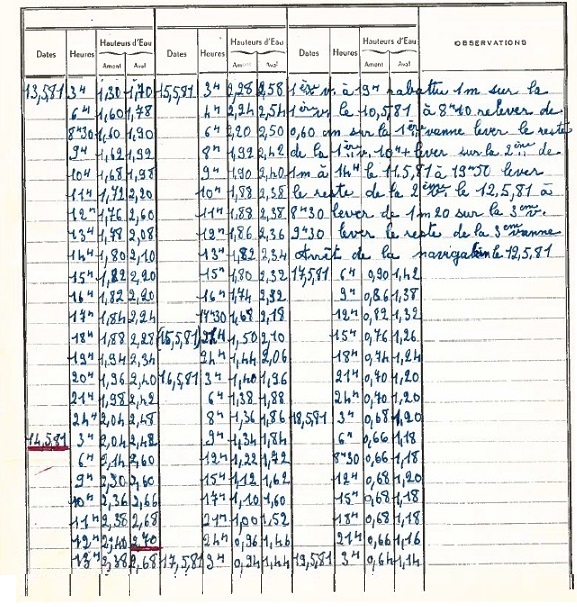 Dates Heures Hauteurs d'Eau Dates Heures Hauteurs d'Eau Dates Heures Hauteurs d'Eau OBSERVATIONS
Amont Aval Amont Aval Amont Aval
13,5,81 3h 1,30 1,70 15,5,81 3h 2,28 2,58 1ère v à 19h rabattu 1m sur la
6h 1,60 1,78 4h 2,24 2,54 1ère v le 10,5,81 à 8h10 relever de
8h30 1,60 1,90 6h 2,20 2,50 0,60 m sur la 1ère vanne lever le reste
9h 1,62 1,92 8h 1,92 2,42 de la 1ère v. 10h + lever sur la 2ème de
10h 1,68 1,98 9h 1,90 2,40 1m à 14h le 11.5,81 à 19h50 lever
11h 1,72 2,20 10h 1,88 2,38 le reste de la 2ème v le 12,5,81 à
12h 1,76 2,60 11h 1,88 2,38 8h30 lever de 1m20 sur la 3ème v.
13h 1,78 2,08 12h 1,86 2,36 9h30 lever le reste de la 3ème vanne
14h 1,80 2,10 13h 1,82 2,34 Arrêt de la navigation le 12,5,81
15h 1,82 2,20 15h 1,80 2,32 17,5,81 6h 0,90 1,42
16h 1,82 2,20 16h 1,74 2,32 9h 0,86 1,38
17h 1,84 2,24 17h30 1,68 2,18 12h 0,82 1,32
18h 1,88 2,28 (15,5,81) 1,50 2,10 15h 0,76 1,26
19h 1,94 2,34 24h 1,44 2,06 18h 0,74 1,24
20h 1,96 2,40 16,5,81 3h 1,40 1,96 21h 0,70 1,20
21h 1,98 2,42 6h 1,38 1,88 24h 0,70 1,20
24h 2,04 2,48 8h 1,36 1,86 18,5,81 3h 0,68 1,20
14,5,81 3h 2,04 2,48 9h 1,34 1,84 6h 0,66 1,18
6h 2,14 2,60 12h 1,22 1,72 8h30 0,66 1,18
9h 2,30 2,60 15h 1,12 1,62 12h 0,68 1,20
10h 2,36 2,66 17h 1,10 1,60 15h 0,68 1,18
11h 2,38 2,68 21h 1,00 1,52 18h 0,68 1,18
12h 2,40 2,70 24h 0,96 1,46 21h 0,66 1,16
13h 2,38 2,68 17,5,81 3h 0,94 1,44 19,5,81 3h 0,64 1,14